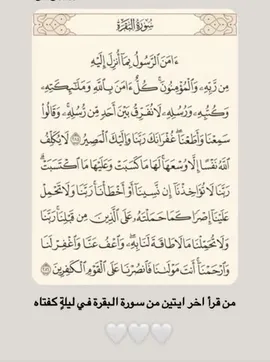 سُورَةُ البَقَرَةِ
ءَامَنَ الرَّسُولُ بِمَا أُنزِلَ إِلَيْهِ
مِن رَّبِّهِ وَالْمُؤْمِنُونَ كُلٌّ ءَامَنَ بِاللَّهِ وَمَلَٰٓئِكَتِهِ
وَكُتُبِهِ وَرُسُلِهِ لَا نُفَرِّقُ بَيْنَ أَحَدٍ مِّن رُّسُلِهِ وَقَالُوا
سَمِعْنَا وَأَطَعْنَا غُفْرَانَكَ رَبَّنَا وَإِلَيْكَ الْمَصِيرُ ٢٨٥ لَا يُكَلِّفُ
اللَّهُ نَفْسًا إِلَّا وُسْعَهَا لَهَا مَا كَسَبَتْ وَعَلَيْهَا مَا اكْتَسَبَتْ
رَبَّنَا لَا تُؤَاخِذْنَا إِن نَّسِينَا أَوْ أَخْطَأْنَا رَبَّنَا وَلَا تَحْمِلْ
عَلَيْنَا إِصْرًا كَمَا حَمَلْتَهُ عَلَى الَّذِينَ مِن قَبْلِنَا رَبَّنَا
وَلَا تُحَمِّلْنَا مَا لَا طَاقَةَ لَنَا بِهِ وَاعْفُ عَنَّا وَاغْفِرْ لَنَا
وَارْحَمْنَا أَنتَ مَوْلَىٰنَا فَانصُرْنَا عَلَى الْقَوْمِ الْكَٰفِرِينَ ٢٨٦
من قرأ اخر ايتين من سورة البقرة في ليلةٍ كفتاه